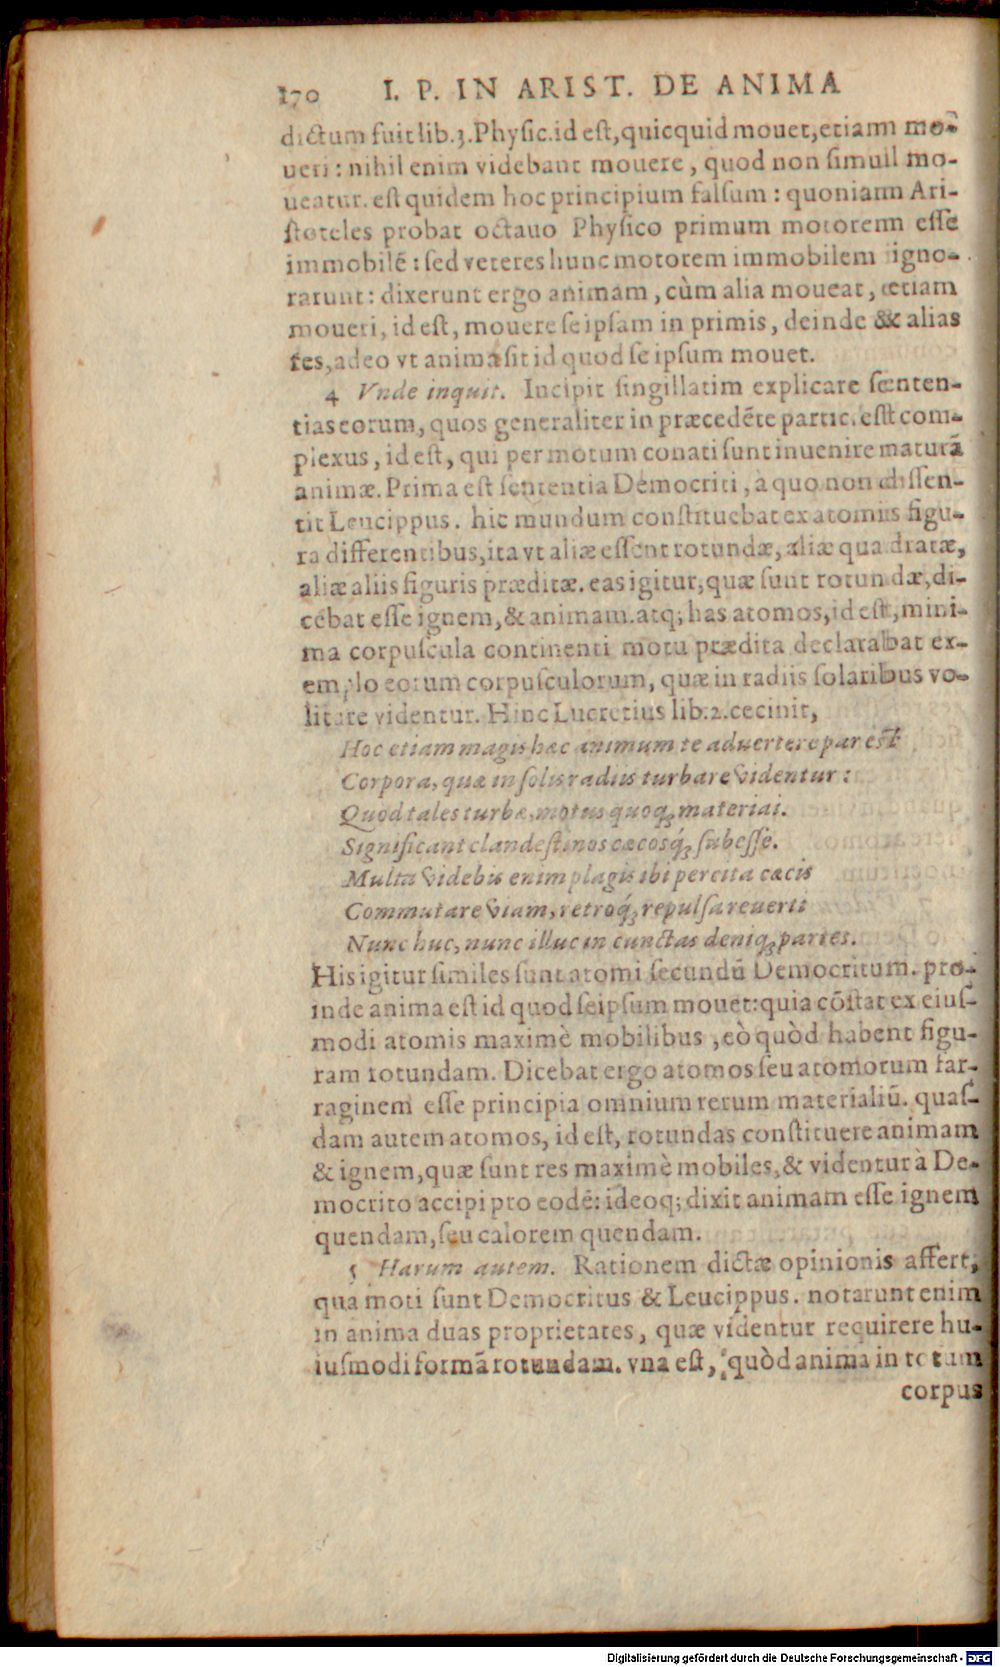 170 I. P. IN ARIST. DE ANIMA
dictum fuit lib. 3. Physic. id est, quicquid mouet, etiam mo-
ueri : nihil enim videbant mouere, quod non simul mo-
ueatur. est quidem hoc principium falsum : quoniam Ari-
stoteles probat octauo Physico primum motorem esse
immobilē : sed veteres hunc motorem immobilem igno-
rarunt : dixerunt ergo animam, cùm alia moueat, etiam
moueri, id est, mouere seipsam in primis, deinde & alias
res, adeo vt anima sit id quod seipsum mouet.
4 Vnde inquit. Incipit singillatim explicare senten-
tias eorum, quos generaliter in præcedēte partic. est com-
plexus, id est, qui per motum conati sunt inuenire naturā
animæ. Prima est sententia Democriti, à quo non dissen-
tit Leucippus. hic mundum constituebat ex atomis figu-
ra differentibus, ita vt aliæ essent rotundæ, aliæ quadratæ,
aliæ aliis figuris præditæ. eas igitur, quæ sunt rotundæ, di-
cebat esse ignem, & animam. atq; has atomos, id est, mini-
ma corpuscula continenti motu prædita declarabat ex-
emplo eorum corpusculorum, quæ in radiis solaribus vo-
litare videntur. Hinc Lucretius lib. 2. cecinit,
Hoc etiam magis hæc animum te aduertere par est
Corpora, quæ in solis radiis turbare videntur :
Quod tales turbæ, motus quoq; materiai.
Significant clandestinos cæcosq́; subesse.
Multa videbis enim plagis ibi percita cæcis
Commutare viam, retroq́; repulsa reuerti
Nunc huc, nunc illuc in cunctas deniq; partes.
His igitur similes sunt atomi secundū Democritum. pro-
inde anima est id quod seipsum mouet : quia cōstat ex eius-
modi atomis maximè mobilibus, eò quòd habent figu-
ram rotundam. Dicebat ergo atomos seu atomorum far-
raginem esse principia omnium rerum materialiū. quas-
dam autem atomos, id est, rotundas constituere animam
& ignem, quæ sunt res maximè mobiles, & videntur à De-
mocrito accipi pro eodē : ideoq; dixit animam esse ignem
quendam, seu calorem quendam.
5 Harum autem. Rationem dictæ opinionis affert,
qua moti sunt Democritus & Leucippus. notarunt enim
in anima duas proprietates, quæ videntur requirere hu-
iusmodi formā rotundam. vna est, quòd anima in totum
corpus
Digitalisierung gefördert durch die Deutsche Forschungsgemeinschaft - DFG